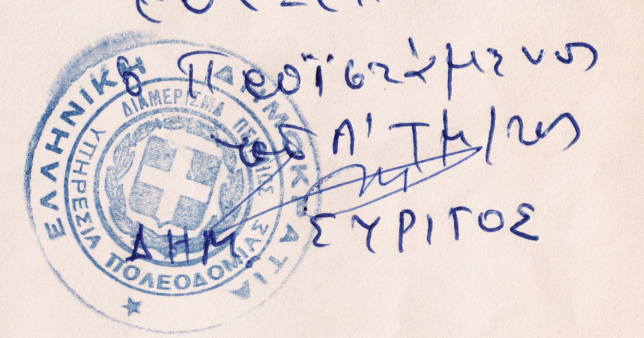 Ο Προϊστάμενος
του Α' Τμ/τος
ΔΗΜ. ΣΥΡΙΓΟΣ
ΕΛΛΗΝΙΚΗ ΔΗΜΟΚΡΑΤΙΑ
ΔΙΑΜΕΡΙΣΜΑ
ΥΠΗΡΕΣΙΑ ΠΟΛΕΟΔΟΜΙΑΣ